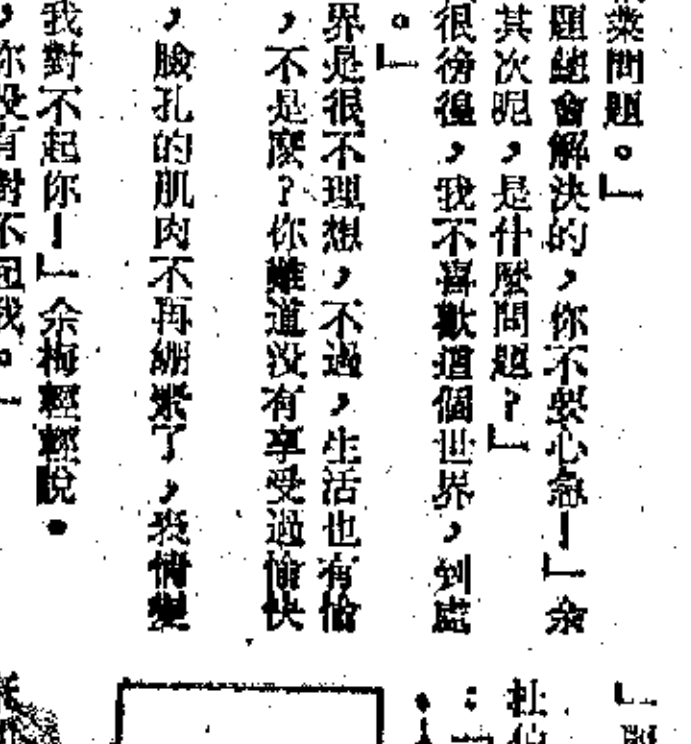 業問題。」
題總會解決的，你不要心急！」余
其次呢，是什麼問題？」
很徬徨，我不喜歡這個世界，到處
。」
界是很不理想，不過，生活也有愉
，不是麼？你難道没有享受過愉快
，臉孔的肌肉不再綳緊了，表情變
我對不起你！」余梅輕輕説。
，你没有對不起我。」
杜